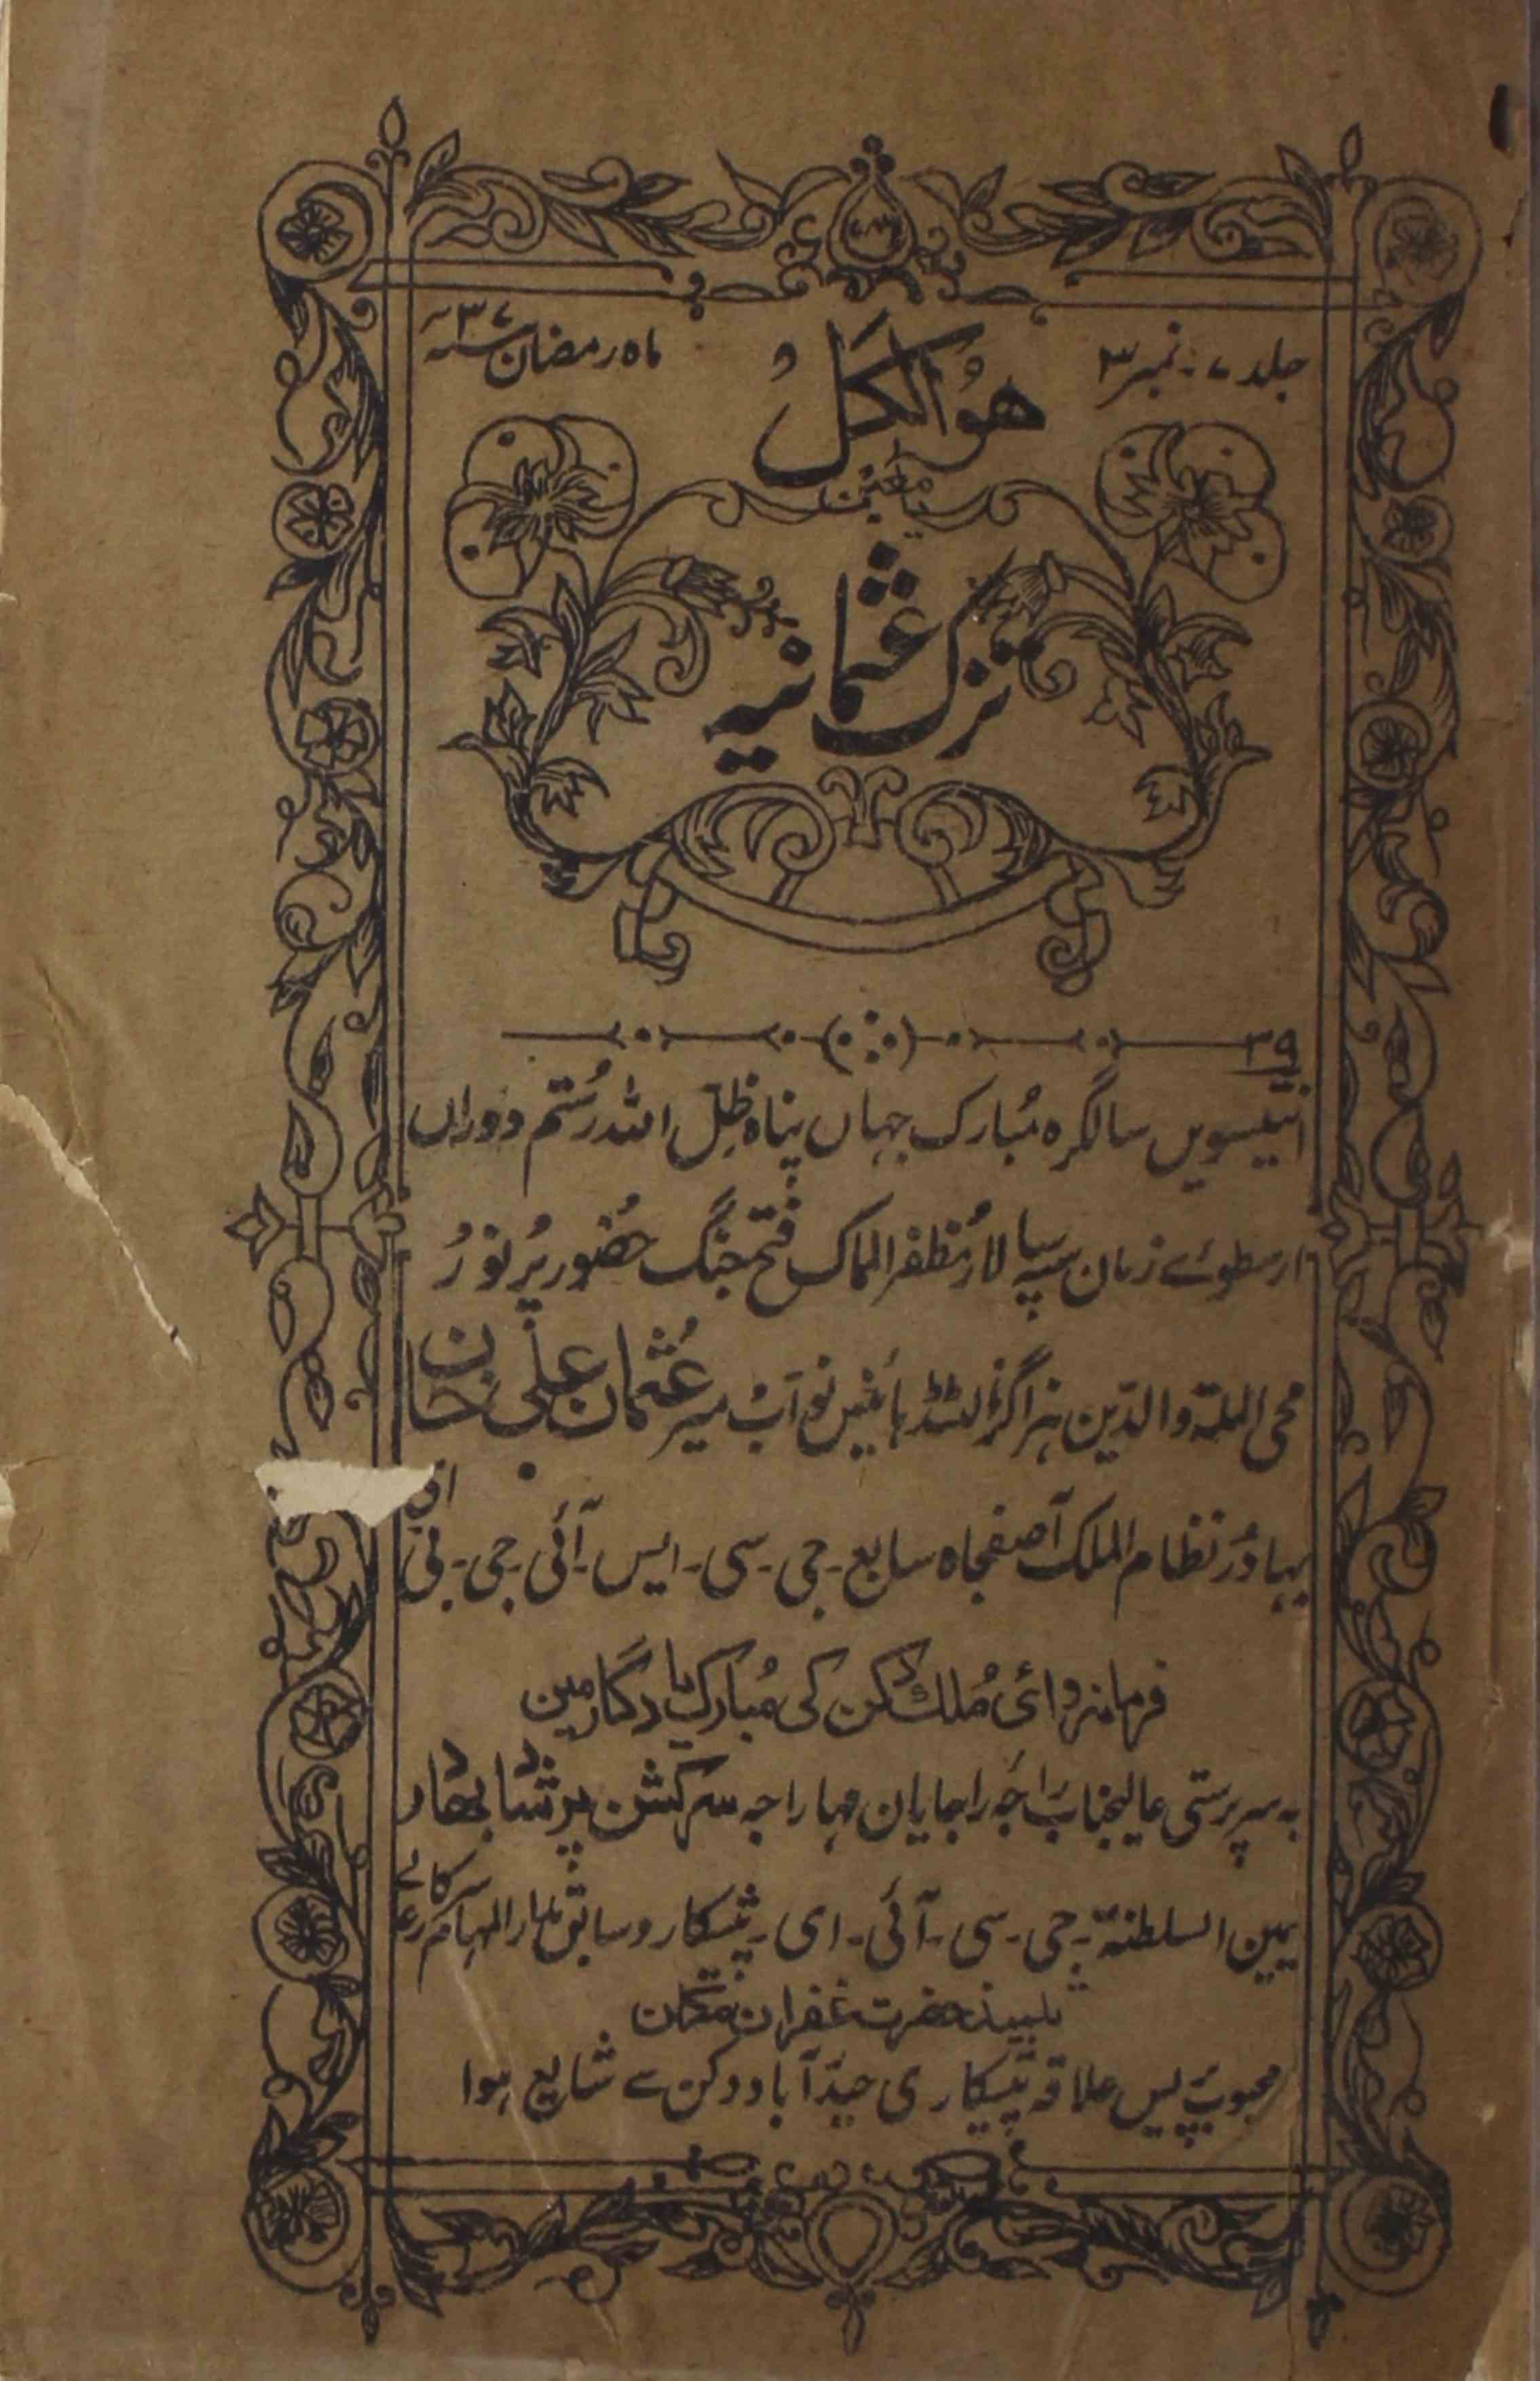 جلد ۷ - نمبر ۳
ماہ رمضان ۳۷ سنہ
ھُوَالکُلُّ
یا معین
تزک عثمانیہ
۳۹
انتیسویں سالگرہ مُبارک جہاں پناہ ظِلّ اللہ رُستم دوراں
ارسطوئے زمان سپہ سالار مُظفر الممالک فتح جنگ حضُور پُر نُورُ
محی الملۃ والدّین ہزاگزالٹڈ ہائینس نوّاب میر عُثمان علی خان
بہادُر نظام الملک آصفجاہ سابع - جی - سی - ایس - آئی - جی - بی
فرمانروائی مُلک دکن کی مُبارک یادگار مین
بہ سرپرستی عالیجناب راجۂ راجایان مہاراجہ سر کشن پرشاد بہادر
یمین السلطنۃ - جی - سی - آئی - ای - پیشکار و سابق مدارالمہام سرکار عالے
تلمیذ حضرت غفران مکان
محبوب پریس علاقہ پیشکاری حیدرآباد دکن سے شایع ہوا